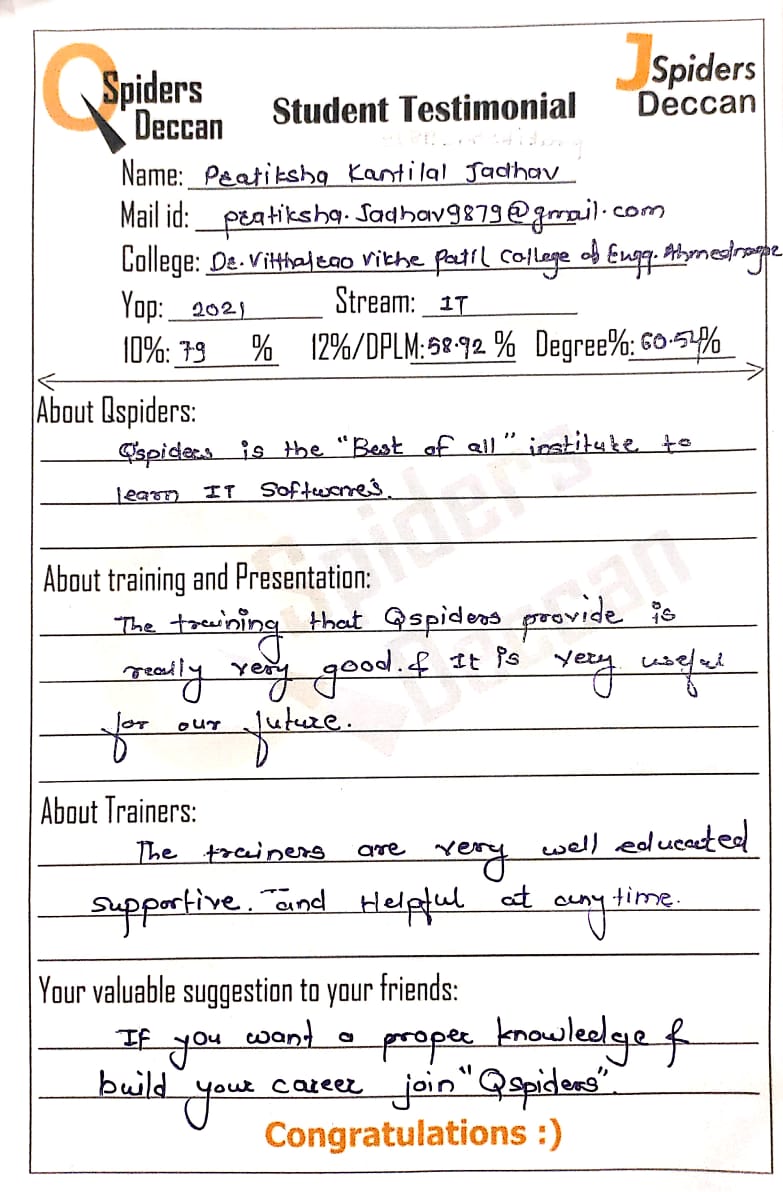 QSpiders Deccan
JSpiders Deccan
Student Testimonial
Name: Pratiksha Kantilal Jadhav
Mail id: pratiksha.Jadhav9879@gmail.com
College: Dr. Vitthalrao Vikhe Patil College of Engg. Ahmednagar
Yop: 2021 Stream: IT
10%: 79 % 12%/DPLM: 58.92 % Degree%: 60.54%
About Qspiders:
Qspiders is the "Best of all" institute to
learn IT Softwares.
About training and Presentation:
The training that Qspiders provide is
really very good. & It is very useful
for our future.
About Trainers:
The trainers are very well educated
supportive. and Helpful at any time.
Your valuable suggestion to your friends:
If you want a proper knowledge &
build your career join "Qspiders".
Congratulations :)
Spiders
Deccan